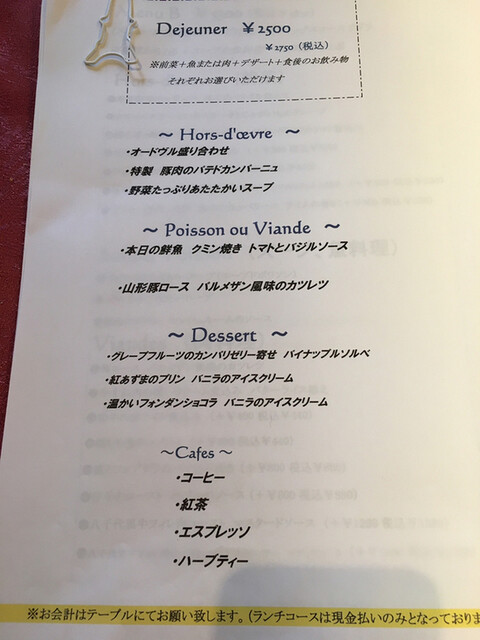 Dejeuner ￥2500
￥2750（税込）
※前菜＋魚または肉＋デザート＋食後のお飲み物
それぞれお選びいただけます
～ Hors-d'œvre ～
・オードヴル盛り合わせ
・特製 豚肉のパテドカンパーニュ
・野菜たっぷりあたたかいスープ
～ Poisson ou Viande ～
・本日の鮮魚 クミン焼き トマトとバジルソース
・山形豚ロース パルメザン風味のカツレツ
～ Dessert ～
・グレープフルーツのカンパリゼリー寄せ パイナップルソルベ
・紅あずまのプリン バニラのアイスクリーム
・温かいフォンダンショコラ バニラのアイスクリーム
～Cafes～
・コーヒー
・紅茶
・エスプレッソ
・ハーブティー
※お会計はテーブルにてお願い致します。（ランチコースは現金払いのみとなっておりま